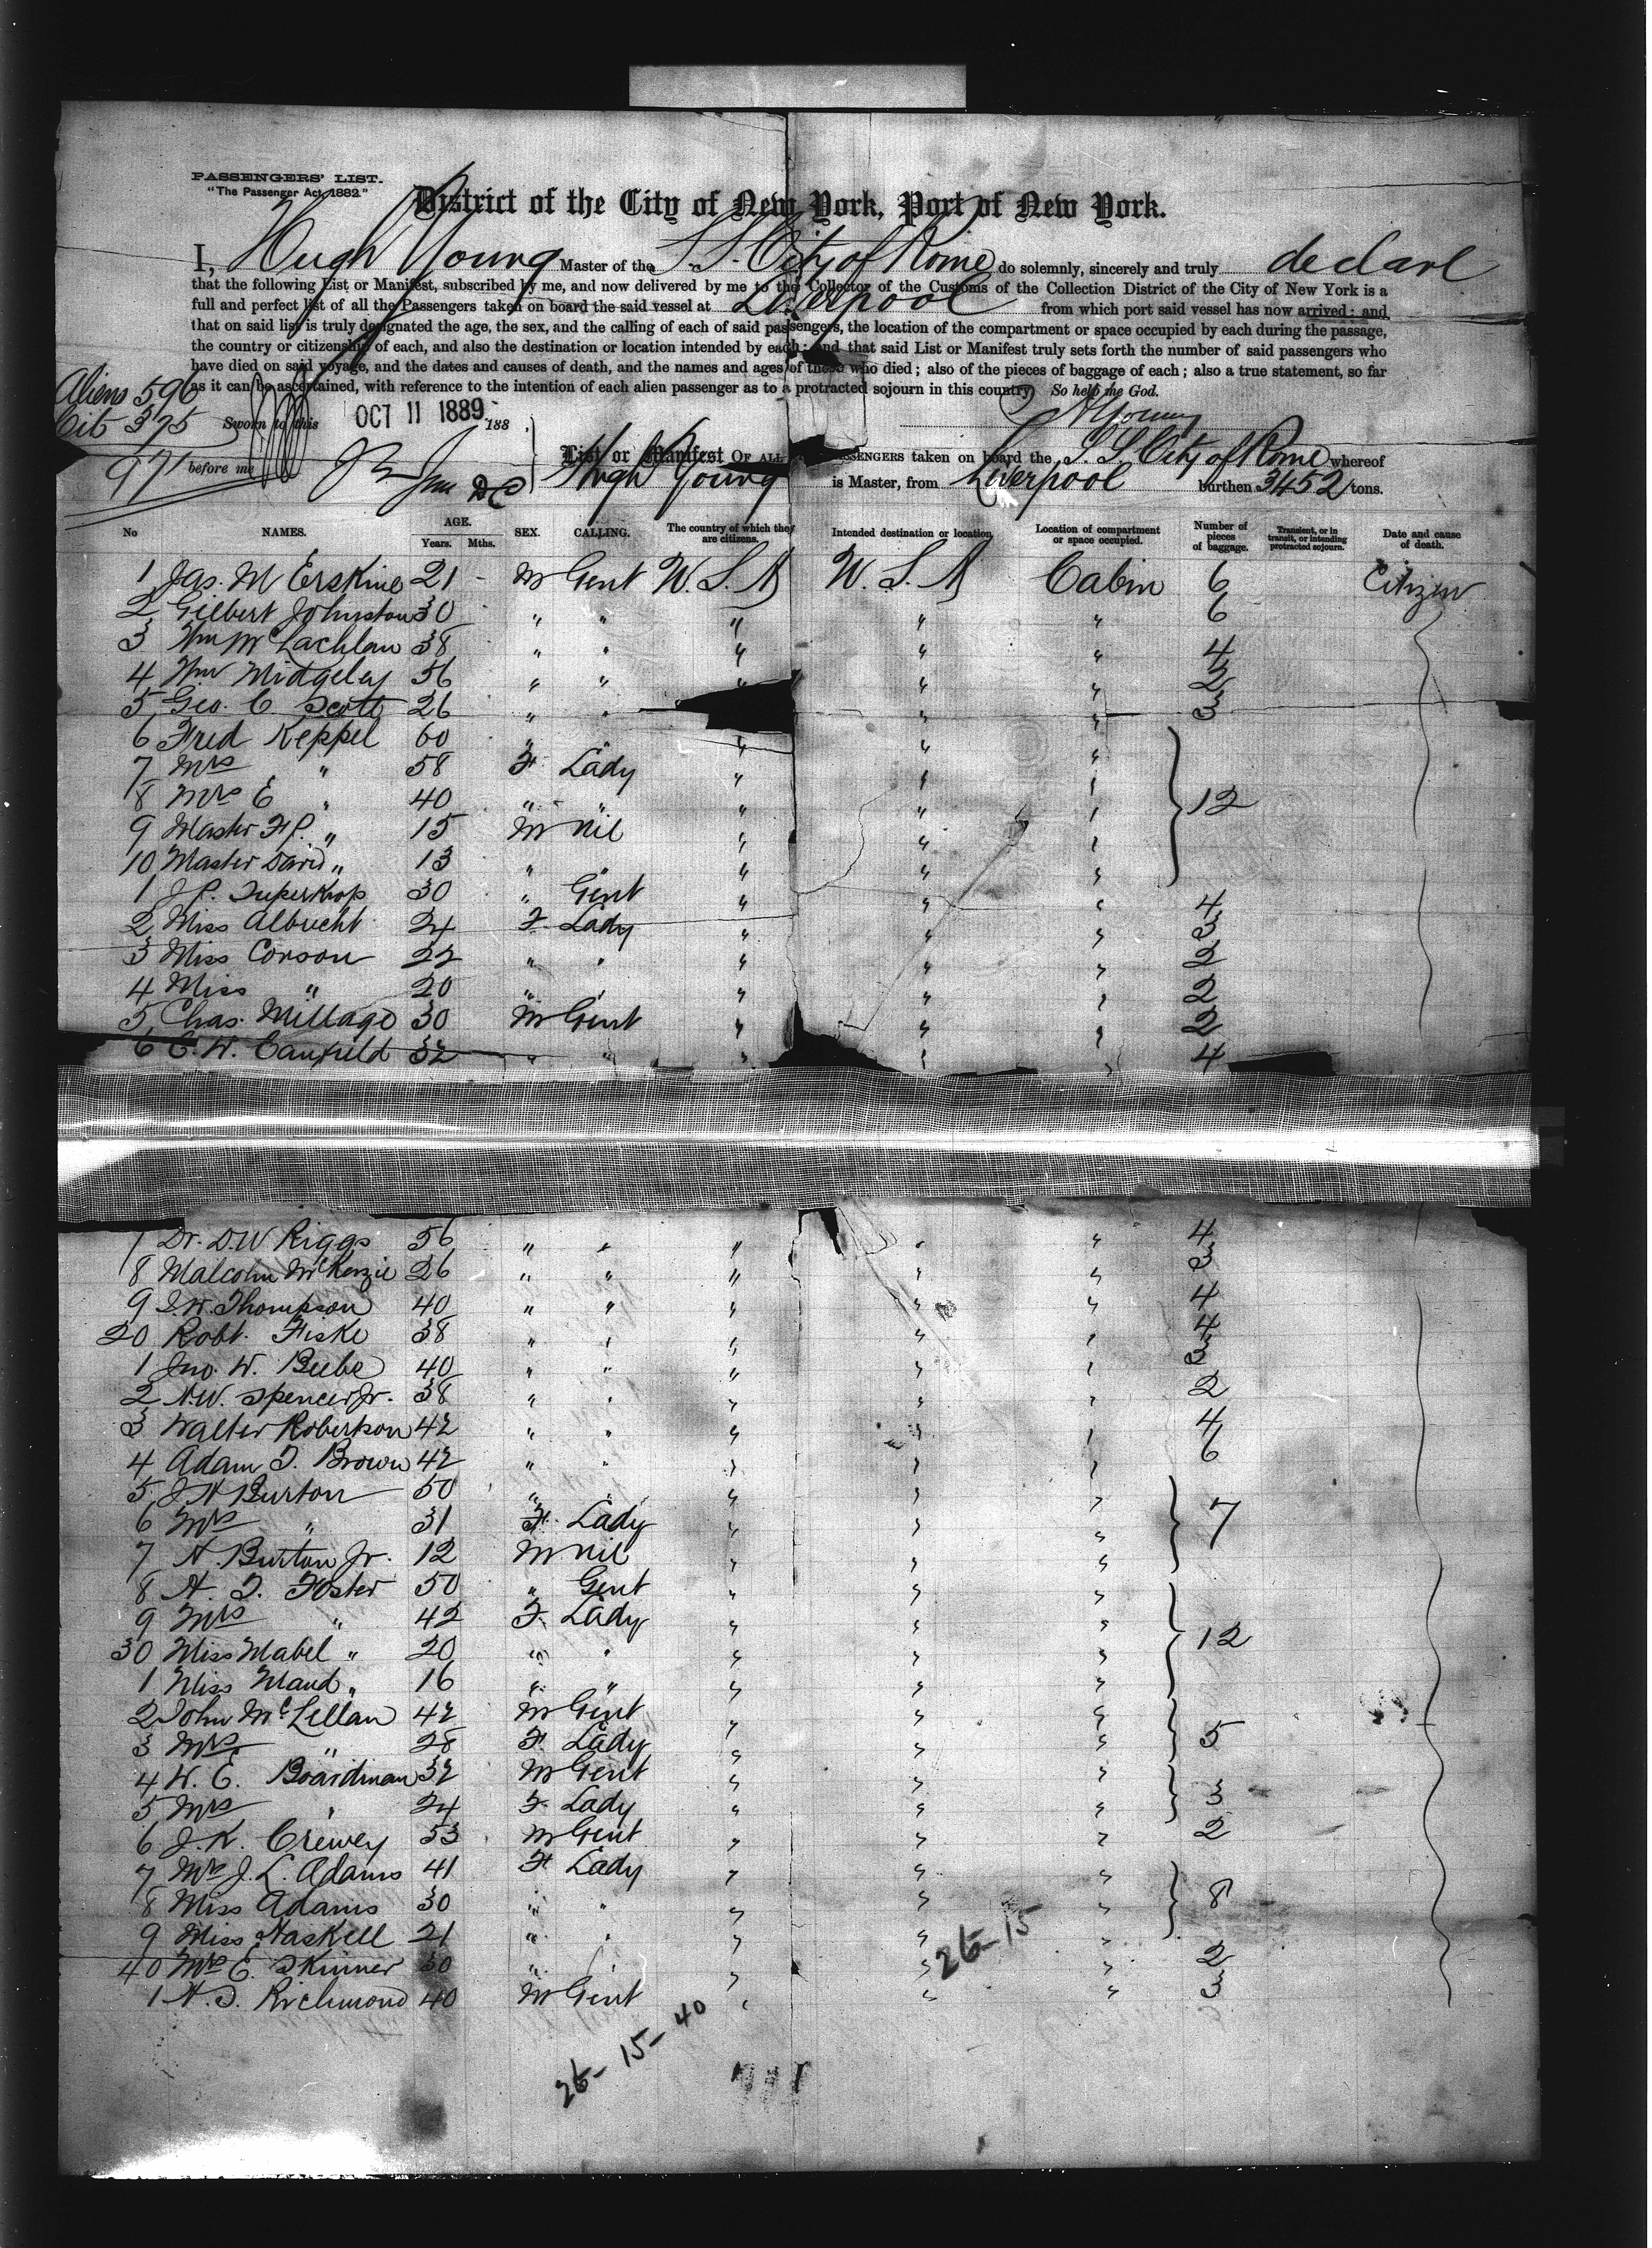 PASSENGERS' LIST.
"The Passenger Act, 1882."
District of the City of New York, Port of New York.
I, Hugh Young Master of the S.S. City of Rome do solemnly, sincerely and truly declare
that the following List or Manifest, subscribed by me, and now delivered by me to the Collector of the Customs of the Collection District of the City of New York is a
full and perfect list of all the Passengers taken on board the said vessel at Liverpool from which port said vessel has now arrived; and
that on said list is truly designated the age, the sex, and the calling of each of said passengers, the location of the compartment or space occupied by each during the passage,
the country or citizenship of each, and also the destination or location intended by each; and that said List or Manifest truly sets forth the number of said passengers who
have died on said voyage, and the dates and causes of death, and the names and ages of those who died; also of the pieces of baggage of each; also a true statement, so far
as it can be ascertained, with reference to the intention of each alien passenger as to a protracted sojourn in this country. So help me God.
Aliens 596
Cit 375
971
Sworn to this OCT 11 1889 188
H Young
before me
List or Manifest OF ALL PASSENGERS taken on board the S.S. City of Rome whereof
Hugh Young is Master, from Liverpool burthen 3452 tons.
No NAMES. AGE. Years. Mths. SEX. CALLING. The country of which they are citizens. Intended destination or location Location of compartment or space occupied. Number of pieces of baggage. Transient, or in transit, or intending protracted sojourn. Date and cause of death.
1 Jas. M Erskine 21 - M Gent U.S.A U.S.A Cabin 6 Citizen
2 Gilbert Johnston 30 " " " " " 6
3 Wm McLachlan 38 " " " " " 4
4 Wm Midgeley 56 " " " " " 2
5 Geo. C. Scott 26 " " " " 3
6 Fred Keppel 60 " " " " "
7 Mrs " 58 F Lady " " "
8 Mrs E " 40 " " " " " 12
9 Master F.P. " 15 M Nil " " "
10 Master David " 13 " " " " "
1 J.P. 30 " Gent " " " 4
2 Miss Albrecht 24 F Lady " " " 3
3 Miss Corson 22 " " " " " 2
4 Miss " 20 " " " " " 2
5 Chas. Millage 30 M Gent " " " 2
6 C.W. Canfield 32 " " " " " 4
7 Dr. D.W Riggs 56 " " " " " 4
8 Malcolm McKenzie 26 " " " " " 3
9 J.W. Thompson 40 " " " " " 4
20 Robt. Fiske 38 " " " " " 4
1 Jno. W. Beebe 40 " " " " " 3
2 N.W. Spencer Jr. 38 " " " " " 2
3 Walter Robertson 42 " " " " " 4
4 Adam T. Brown 42 " " " " " 6
5 J H Burton 50 " " " " "
6 Mrs " 31 F. Lady " " " 7
7 H. Burton Jr. 12 M Nil " " "
8 A. T. Foster 50 " Gent " " "
9 Mrs " 42 F. Lady " " "
30 Miss Mabel " 20 " " " " " 12
1 Miss Maud " 16 " " " " "
2 John McLellan 42 M Gent " " "
3 Mrs " 28 F. Lady " " " 5
4 W. E. Boardman 32 M Gent " " "
5 Mrs " 24 F. Lady " " " 3
6 J.K. Crewey 53 M Gent " " " 2
7 Mrs J.L. Adams 41 F Lady " " "
8 Miss Adams 30 " " " " " 8
9 Miss Haskell 21 " " " " "
40 Mrs E. Skinner 30 " " " " " 2
1 H.T. Richmond 40 M Gent " " " 3
26-15
26-15-40